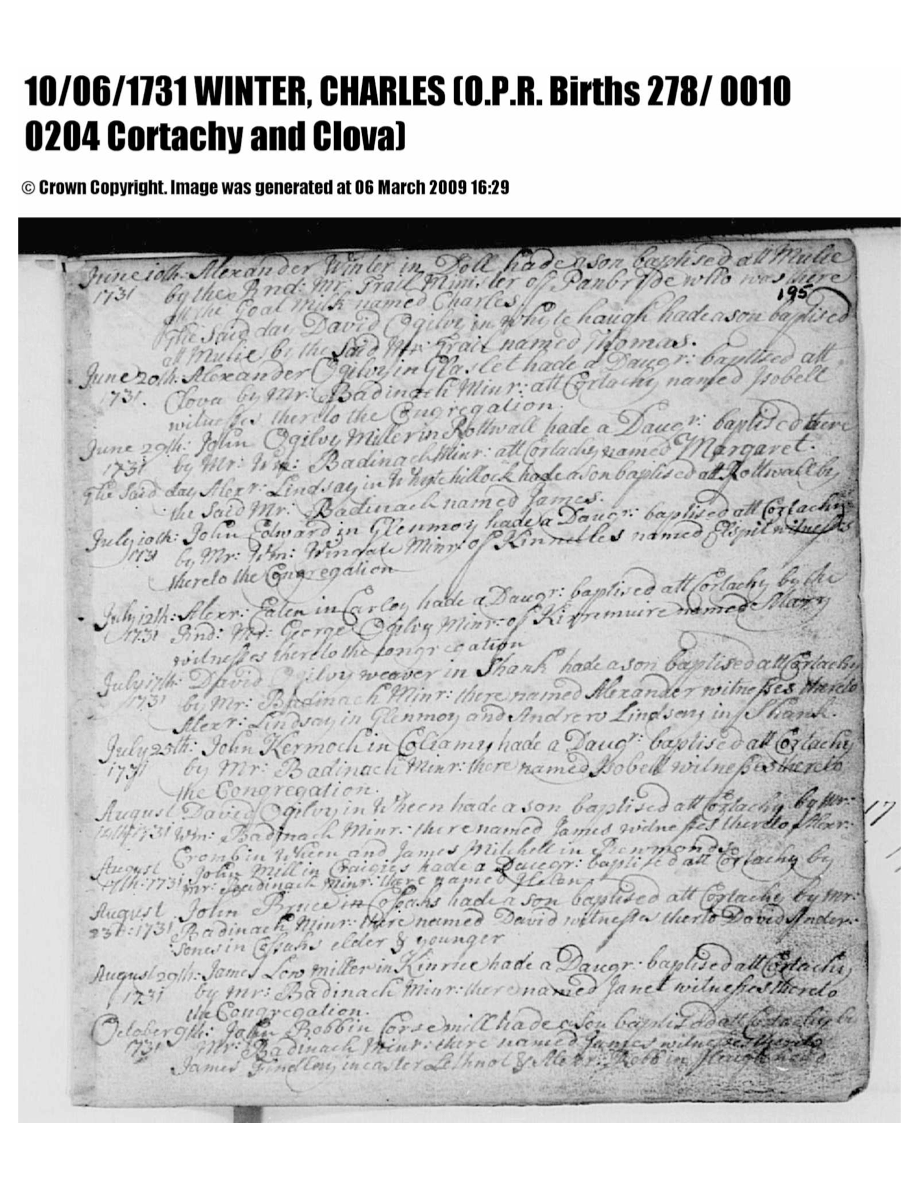 10/06/1731 WINTER, CHARLES (O.P.R. Births 278/ 0010
0204 Cortachy and Clova)
© Crown Copyright. Image was generated at 06 March 2009 16:29
June 10th: Alexander Winter in Doll had a son baptised att Mulie
1731 by the Rnd: Mr: Trail Minister of Panbryde who was there
195
att the Goal Milk named Charles.
The said day David Ogilvy in Whyte haugh had a son baptised
att Mulie by the said Mr: Trail named Thomas.
June 20th: Alexander Ogilvy in Glaslet had a Daugr: baptised att
1731. Clova by Mr: Badinach Minr: att Cortachy named Isobell
witnesses thereto the Congregation.
June 29th: John Ogilvy Miller in Rottwall had a Daugr: baptised there
1731 by Mr: Wm: Badinach Minr: att Cortachy named Margaret.
The said day Alexr: Lindsay in Whytehillock had a son baptised att Rottwall by
the said Mr: Badinach named James.
July 10th: John Edward in Glenmoy had a Daugr: baptised att Cortachy
1731 by Mr: Wm: Minr: of named Elspit witnesses
thereto the Congregation
July 12th: Alexr: Eaten in Carley had a Daugr: baptised att Cortachy by the
1731 Rnd: Mr: George Ogilvy Minr: of Kirremuire named Mary
witnesses thereto the congregation
July 17th: David Ogilvy weaver in Shank had a son baptised att Cortachy
1731 by Mr: Badinach Minr: there named Alexander witnesses thereto
Alexr: Lindsay in Glenmoy and Andrew Lindsay in Shank.
July 25th: John Kermoch in had a Daugr: baptised att Cortachy
1731 by Mr: Badinach Minr: there named Isobell witnesses thereto
the Congregation.
August David Ogilvy in Wheen had a son baptised att Cortachy by Mr:
1731 Wm: Badinach Minr: there named James witnesses thereto Alexr:
Cromb in Wheen and James Mitchell in
August John Mill in Craigies had a Daugr: baptised att Cortachy by
17th: 1731 Mr: Badinach Minr: there named Helen
August John Bruce in Cossahs had a son baptised att Cortachy by Mr:
23d: 1731 Badinach Minr: there named David witnesses therto David Ander:
sones in Cossahs elder & younger
August 29th: James Low Miller in Kinrie had a Daugr: baptised att Cortachy
1731 by Mr: Badinach Minr: there named Janet witnesses thereto
the Congregation.
October 9th: John Robb in Corsemill had a son baptised att Cortachy by
1731 Mr: Badinach Minr: there named James witnesses thereto
James Findlay in easter Lethnot & Alexr: Robb in
17